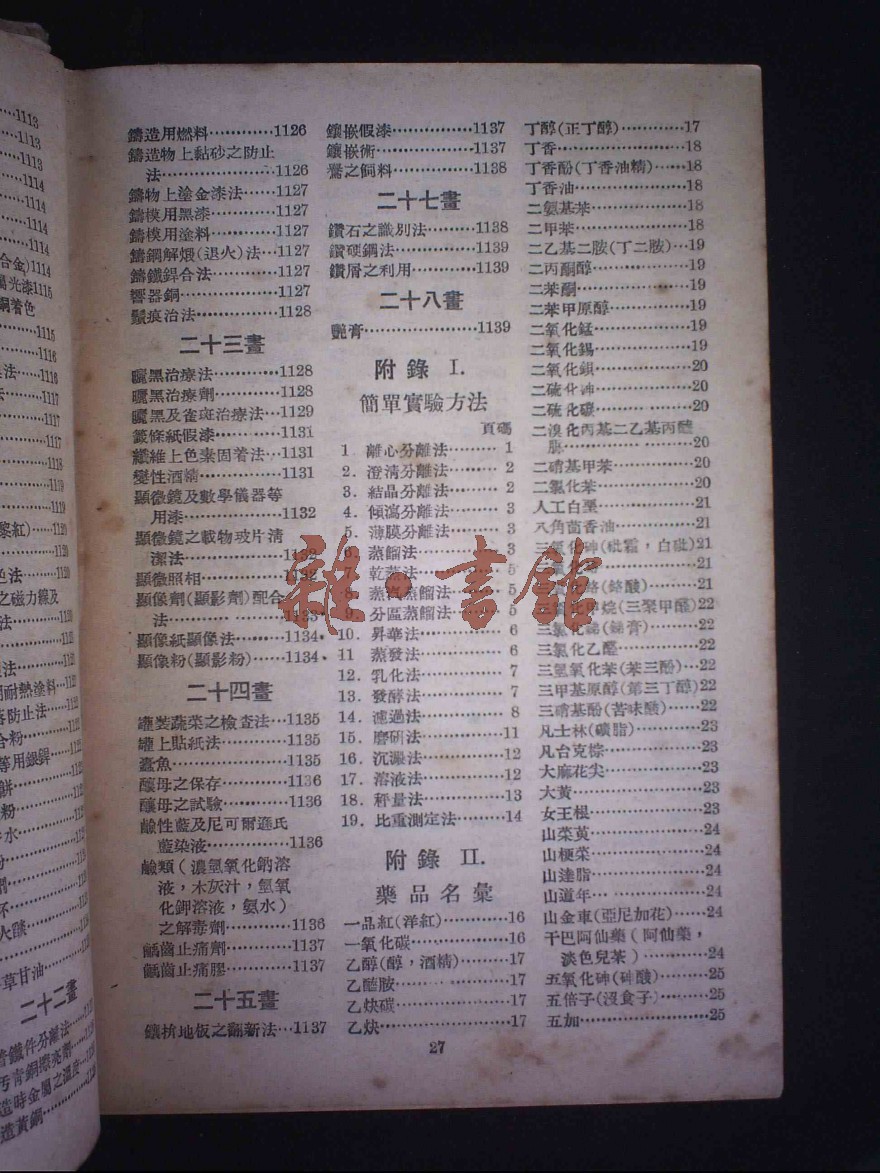 鑄造用燃料…………1126
鑄造物上黏砂之防止
法…………………1126
鑄物上塗金漆法……1127
鑄模用黑漆…………1127
鑄模用塗料…………1127
鑄鋼解煅(退火)法…1127
鑄鐵銲合法…………1127
響器銅………………1127
鬚瘡治法……………1128
二十三畫
曬黑治療法…………1128
曬黑治療劑…………1128
曬黑及雀斑治療法…1129
籤條紙假漆…………1131
纖維上色素固着法…1131
變性酒精……………1131
顯微鏡及數學儀器等
用漆………………1132
顯微鏡之載物玻片淸
潔法………………1132
顯微照相……………1132
顯像劑(顯影劑)配合
法…………………1133
顯像紙顯像法………1134
顯像粉(顯影粉)……1134
二十四畫
罐裝蔬菜之檢查法…1135
罐上貼紙法…………1135
蠹魚…………………1135
釀母之保存…………1136
釀母之試驗…………1136
鹼性藍及尼可爾遜氏
藍染液……………1136
鹼類(濃氫氧化鈉溶
液,木灰汁,氫氧
化鉀溶液,氨水)
之解毒劑…………1136
齲齒止痛劑…………1137
齲齒止痛膠…………1137
二十五畫
鑲拚地板之翻新法…1137
鑲嵌假漆……………1137
鑲嵌術………………1137
鸒之飼料……………1138
二十七畫
鑽石之識別法………1138
鑽硬鋼法……………1139
鑽屑之利用…………1139
二十八畫
艷膏…………………1139
附錄 I.
簡單實驗方法
頁碼
1 離心分離法………1
2. 澄清分離法………2
3. 結晶分離法………2
4. 傾瀉分離法………3
5. 薄膜分離法………3
6. 蒸餾法……………3
7 乾蒸法……………5
8 蒸汽蒸餾法………5
9 分區蒸餾法………5
10. 昇華法……………6
11 蒸發法……………6
12. 乳化法……………7
13. 發酵法……………7
14. 濾過法……………8
15. 磨研法……………11
16. 沉澱法……………12
17. 溶液法……………12
18. 秤量法……………13
19. 比重測定法………14
附錄 II.
藥品名彙
一品紅(洋紅)…………16
一氧化碳………………16
乙醇(醇,酒精)………17
乙醯胺…………………17
乙炔碳…………………17
乙炔……………………17
丁醇(正丁醇)…………17
丁香……………………18
丁香酚(丁香油精)……18
丁香油…………………18
二氨基苯………………18
二甲苯…………………18
二乙基二胺(丁二胺)…19
二丙酮醇………………19
二苯酮…………………19
二苯甲原醇……………19
二氧化錳………………19
二氧化錫………………19
二氧化鋇………………20
二硫化砷………………20
二硫化碳………………20
二溴化丙基二乙基丙醯
脲…………………20
二硝基甲苯……………20
二氯化苯………………20
人工白堊………………21
八角茴香油……………21
三氧化砷(砒霜,白砒)21
三氧化鉻(鉻酸)………21
三氯化銻(銻膏)………22
三氯化乙醛……………22
三羥氧化苯(苯三酚)…22
三甲基原醇(第三丁醇)22
三硝基酚(苦味酸)……22
凡士林(礦脂)…………23
凡台克棕………………23
大麻花尖………………23
大黃……………………23
女王根…………………23
山菜萸…………………24
山梗菜…………………24
山達脂…………………24
山道年…………………24
山金車(亞尼加花)……24
干巴阿仙藥(阿仙藥,
淡色兒茶)…………24
五氧化砷(砷酸)………25
五倍子(沒食子)………25
五加……………………25
27
雜·書館